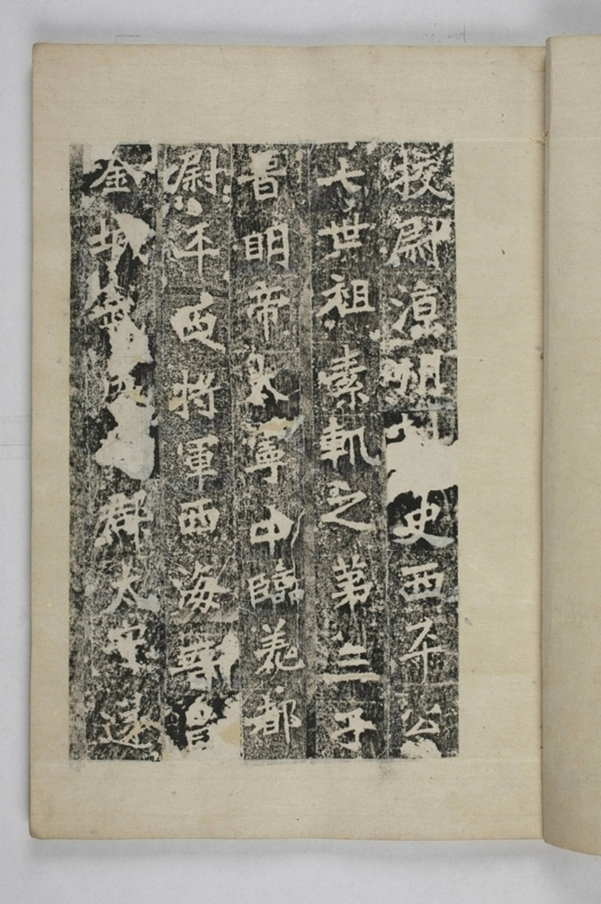 校尉涼州史西平公
七世祖素軌之第三子
晉明帝太寧中臨羌都
尉平西將軍西海晉昌
金城武郡太守遂